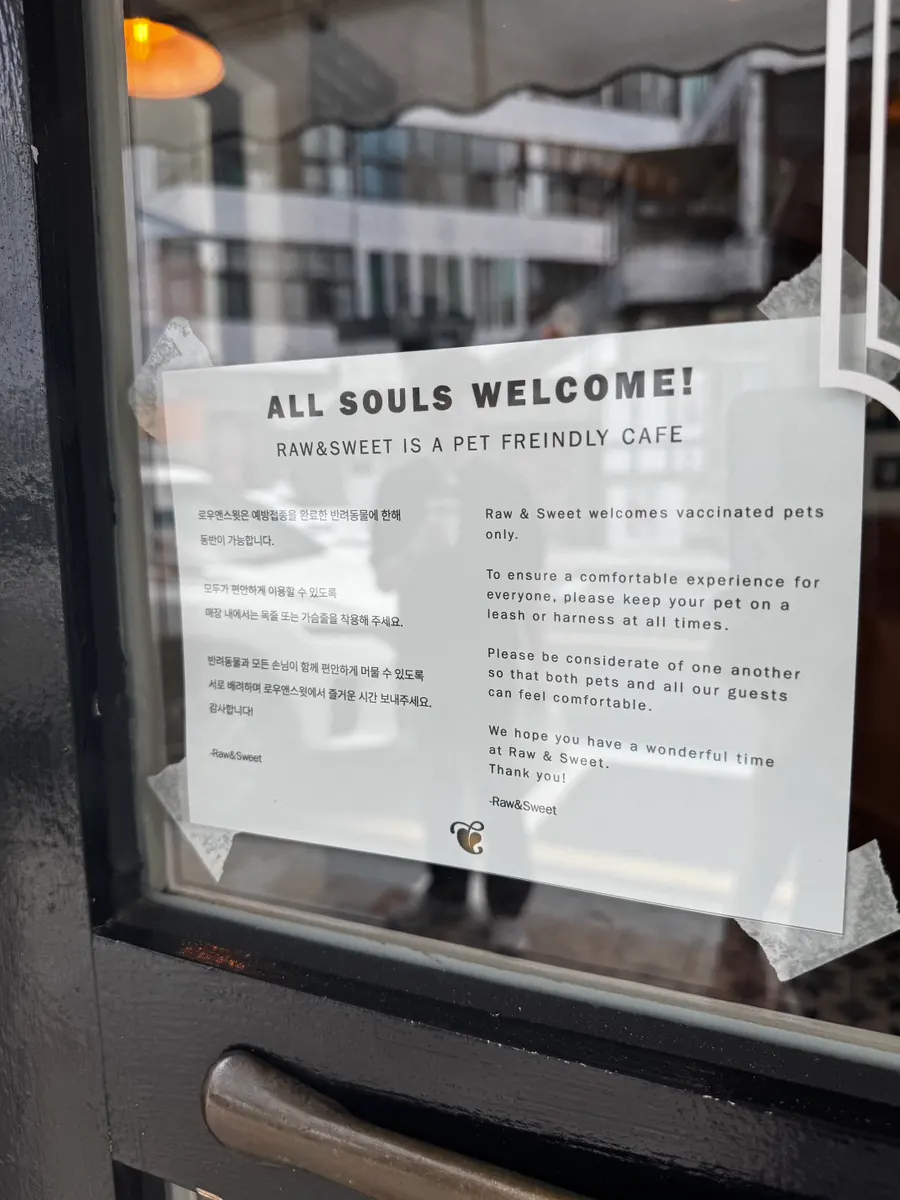 ALL SOULS WELCOME!
RAW&SWEET IS A PET FREINDLY CAFE
로우앤스윗은 예방접종을 완료한 반려동물에 한해
동반이 가능합니다.
모두가 편안하게 이용할 수 있도록
매장 내에서는 목줄 또는 가슴줄을 착용해 주세요.
반려동물과 모든 손님이 함께 편안하게 머물 수 있도록
서로 배려하며 로우앤스윗에서 즐거운 시간 보내주세요.
감사합니다!
-Raw&Sweet
Raw & Sweet welcomes vaccinated pets
only.
To ensure a comfortable experience for
everyone, please keep your pet on a
leash or harness at all times.
Please be considerate of one another
so that both pets and all our guests
can feel comfortable.
We hope you have a wonderful time
at Raw & Sweet.
Thank you!
-Raw&Sweet